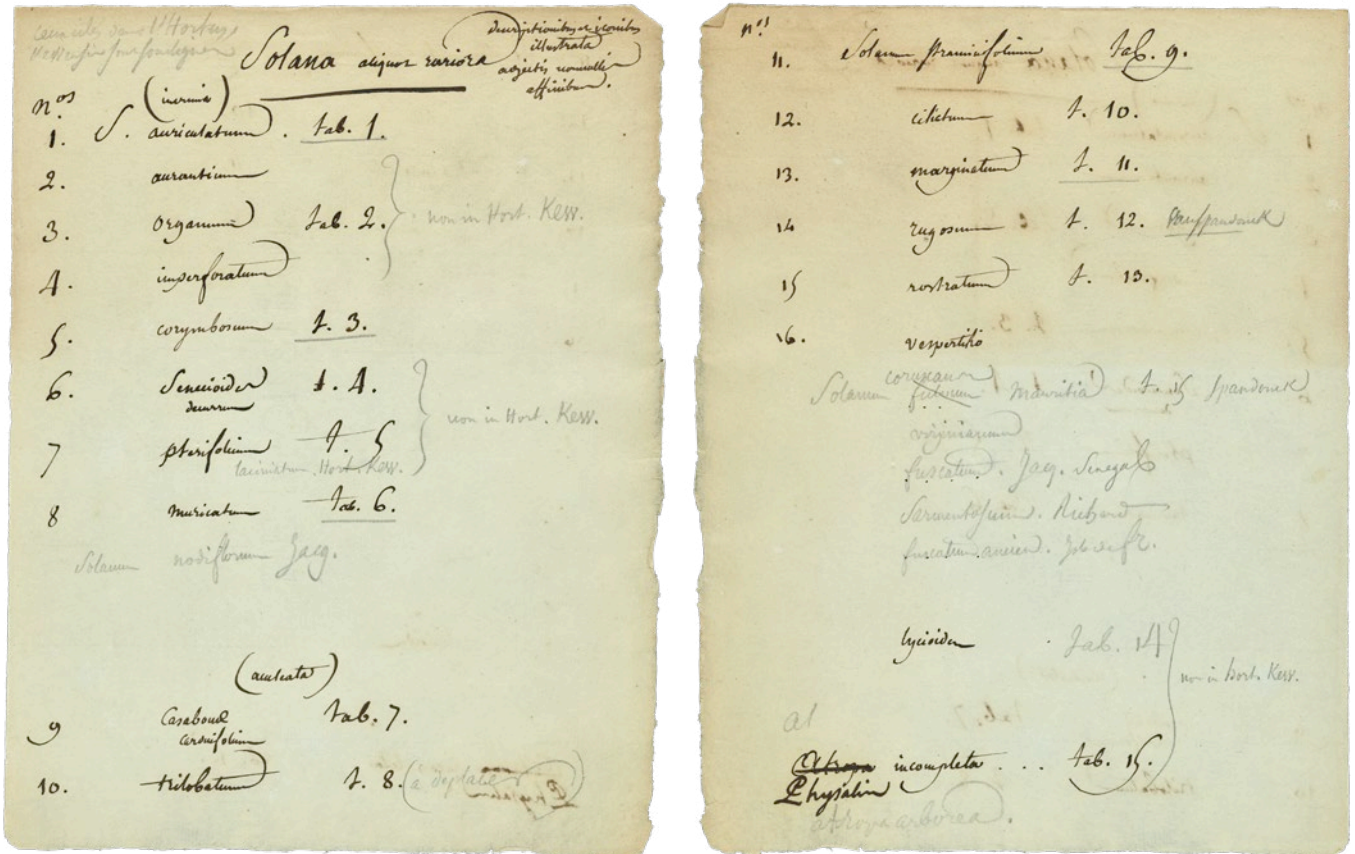 Solana aliquot rariora
descriptionibus et iconibus
illustrata
adjectis nonnullis
affinibus.
nos
(inermia)
1. S. auriculatum. tab. 1.
2. aurantium
3. organum tab. 2.
non in Hort. Kew.
4. imperforatum
5. corymbosum t. 3.
6 Senecioides t. 4.
decurrens
non in Hort. Kew.
7 pterifolium t. 5
laciniatum. Hort. Kew.
8 muricatum tab. 6.
Solanum nodiflorum Jacq.
(aculeata)
9 Casabonæ tab. 7.
carduifolium
10. trilobatum t. 8. (à déplacer)
Physalis
nos
11. Solanum stramonifolium tab. 9.
12. ciliatum t. 10.
13. marginatum t. 11.
14 rugosum t. 12.
15 rostratum t. 13.
16. vespertilio
Solanum Mauritia t. 15 Spandonck
virginianum
fuscatum. Jacq. Senegal
Sarmentosum. Richard
fuscatum
lycioides tab. 14
non in Hort. Kew.
at
Atropa incompleta ... tab. 15.
Physalis
atropa arborea.